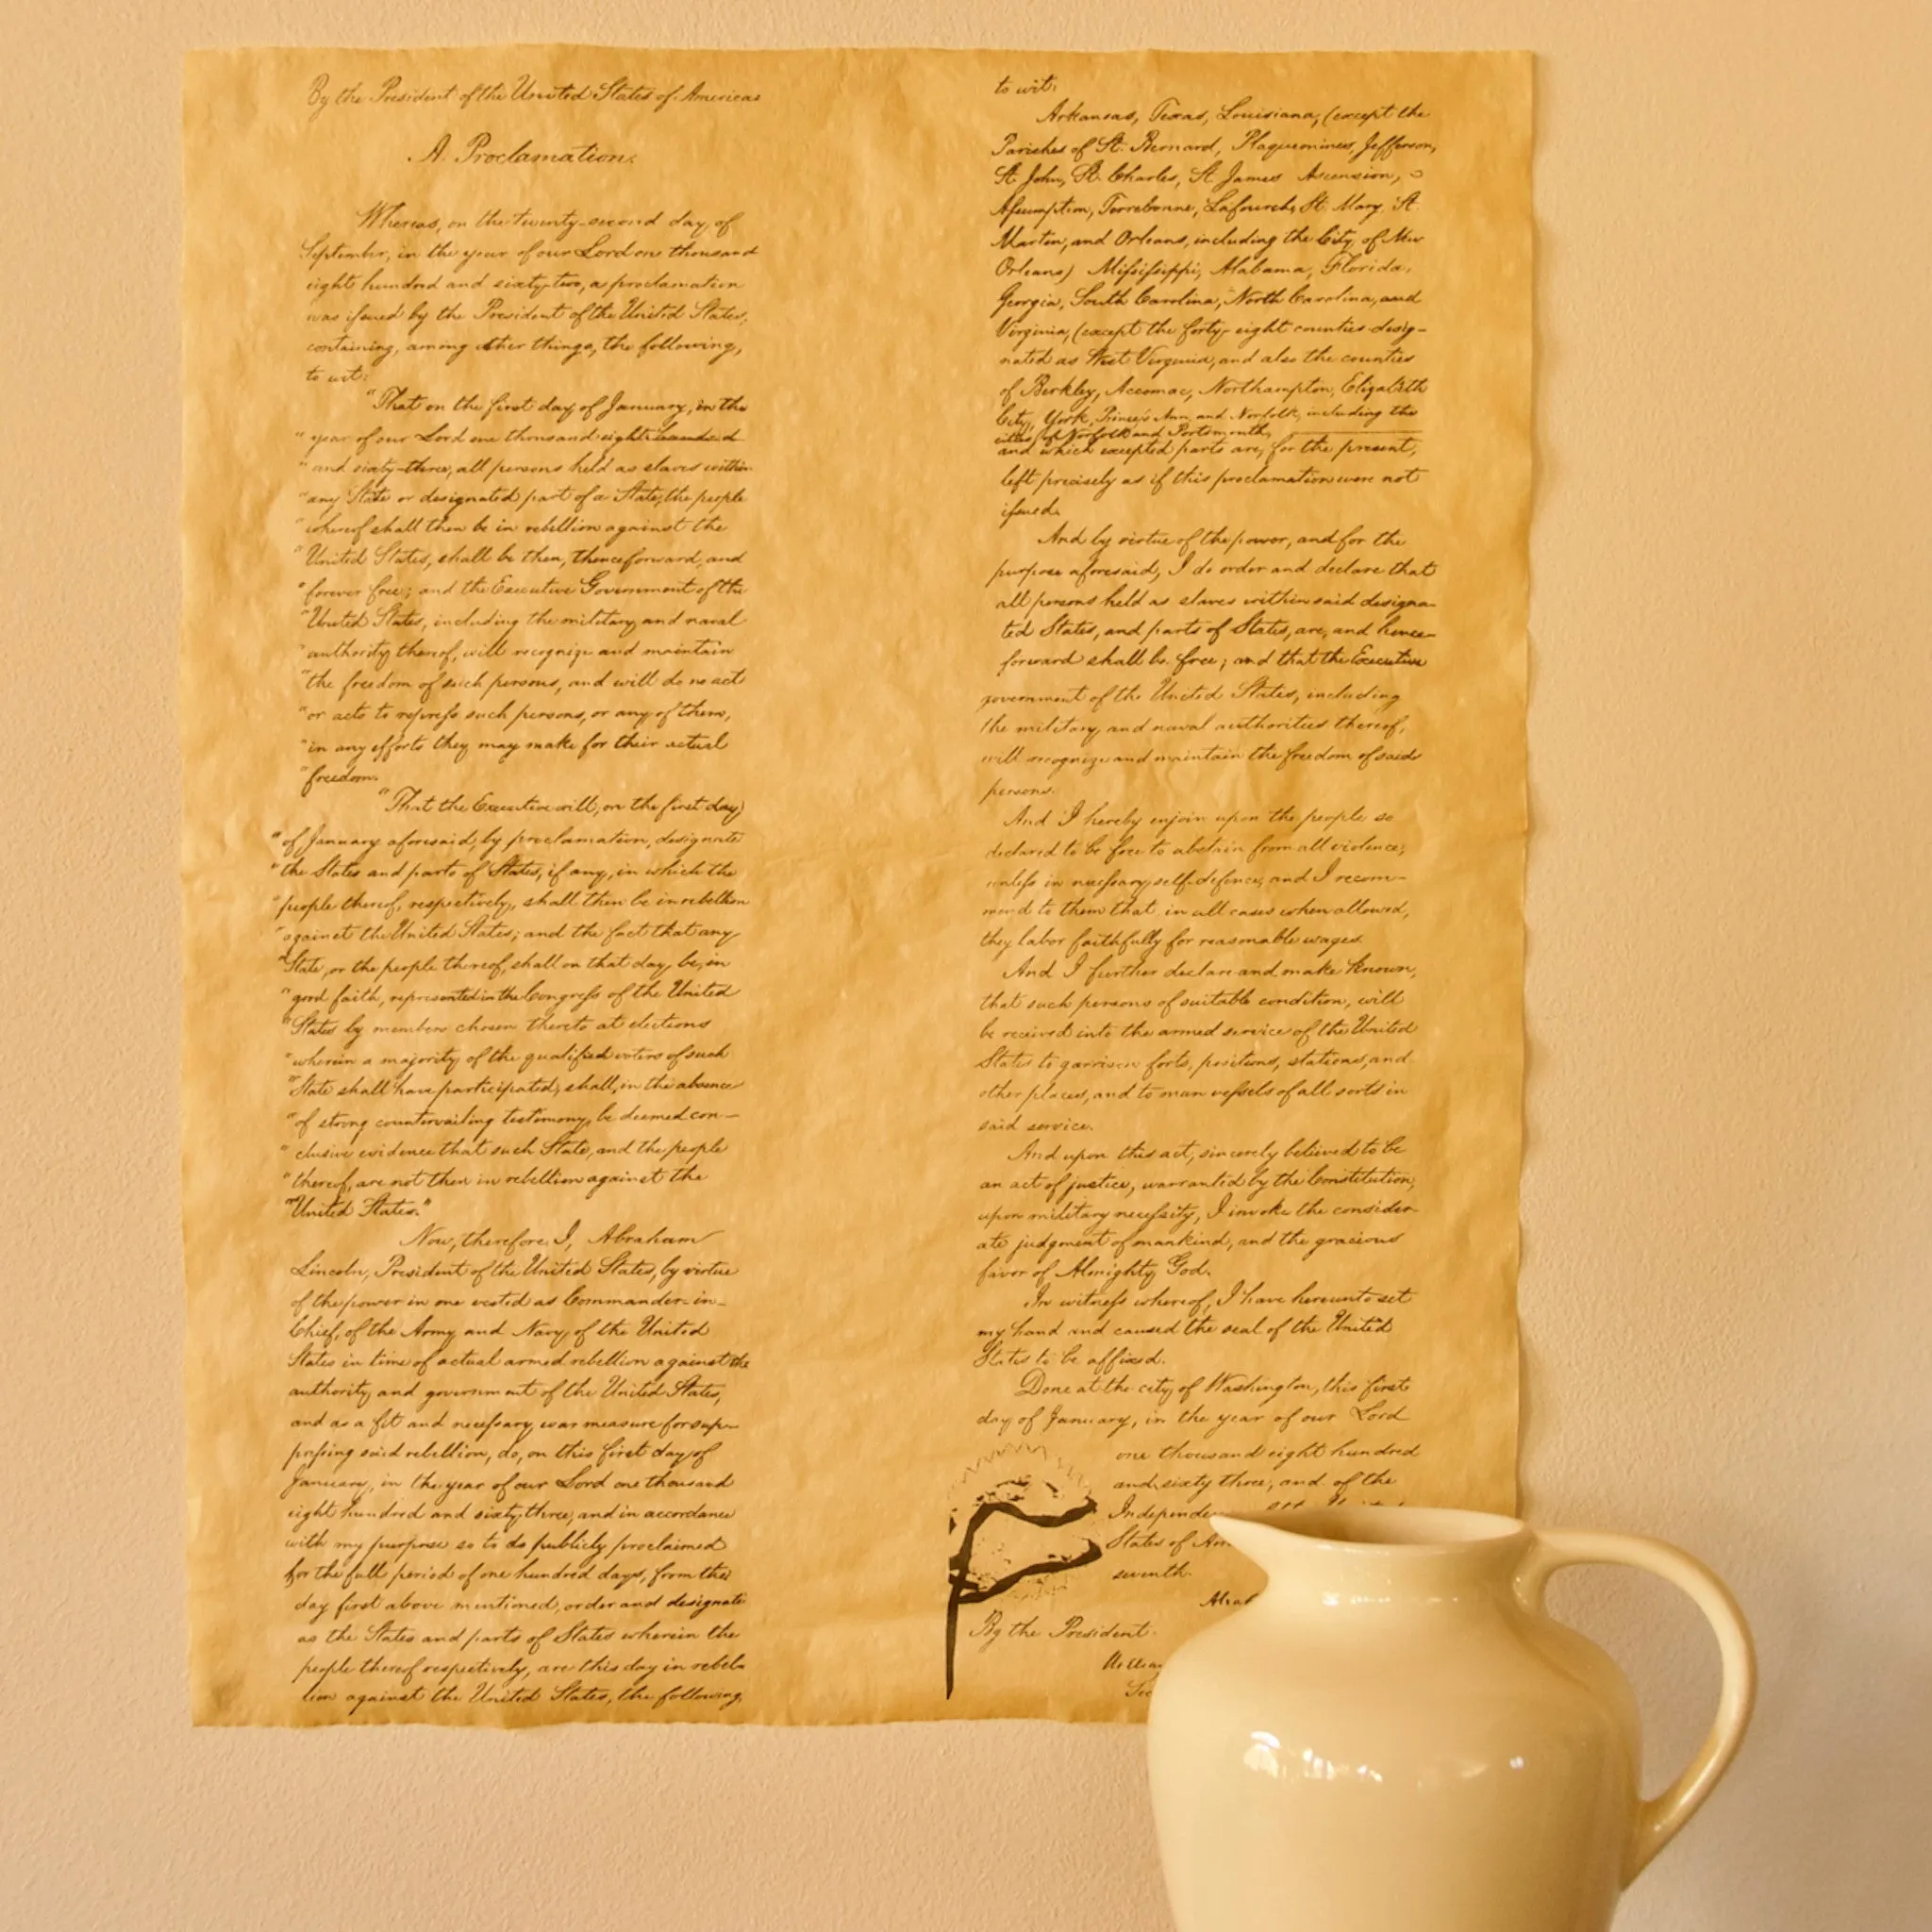 By the President of the United States of America:
A Proclamation.
Whereas, on the twenty-second day of
September, in the year of our Lord one thousand
eight hundred and sixty-two, a proclamation
was issued by the President of the United States,
containing, among other things, the following,
to wit:
"That on the first day of January, in the
"year of our Lord one thousand eight hundred
"and sixty-three, all persons held as slaves within
"any State or designated part of a State, the people
"whereof shall then be in rebellion against the
"United States, shall be then, thenceforward, and
"forever free; and the Executive Government of the
"United States, including the military and naval
"authority thereof, will recognize and maintain
"the freedom of such persons, and will do no act
"or acts to repress such persons, or any of them,
"in any efforts they may make for their actual
"freedom.
"That the Executive will, on the first day
"of January aforesaid, by proclamation, designate
"the States and parts of States, if any, in which the
"people thereof, respectively, shall then be in rebellion
"against the United States; and the fact that any
"State, or the people thereof, shall on that day be, in
"good faith, represented in the Congress of the United
"States by members chosen thereto at elections
"wherein a majority of the qualified voters of such
"State shall have participated, shall, in the absence
"of strong countervailing testimony, be deemed con-
"clusive evidence that such State, and the people
"thereof, are not then in rebellion against the
"United States."
Now, therefore I, Abraham
Lincoln, President of the United States, by virtue
of the power in me vested as Commander-in-
Chief, of the Army and Navy of the United
States in time of actual armed rebellion against the
authority and government of the United States,
and as a fit and necessary war measure for sup-
pressing said rebellion, do, on this first day of
January, in the year of our Lord one thousand
eight hundred and sixty three, and in accordance
with my purpose so to do publicly proclaimed
for the full period of one hundred days, from the
day first above mentioned, order and designate
as the States and parts of States wherein the
people thereof respectively, are this day in rebel-
lion against the United States, the following,
to wit:
Arkansas, Texas, Louisiana, (except the
Parishes of St. Bernard, Plaquemines, Jefferson,
St. John, St. Charles, St. James Ascension,
Assumption, Terrebonne, Lafourche, St. Mary, St.
Martin, and Orleans, including the City of New
Orleans) Mississippi, Alabama, Florida,
Georgia, South Carolina, North Carolina, and
Virginia, (except the forty-eight counties desig-
nated as West Virginia, and also the counties
of Berkley, Accomac, Northampton, Elizabeth
City, York, Princess Ann, and Norfolk, including the
cities of Norfolk and Portsmouth,
and which excepted parts are, for the present,
left precisely as if this proclamation were not
issued.
And by virtue of the power, and for the
purpose aforesaid, I do order and declare that
all persons held as slaves within said designa-
ted States, and parts of States, are, and hence-
forward shall be free; and that the Executive
government of the United States, including
the military and naval authorities thereof,
will recognize and maintain the freedom of said
persons.
And I hereby enjoin upon the people so
declared to be free to abstain from all violence,
unless in necessary self-defence; and I recom-
mend to them that in all cases when allowed,
they labor faithfully for reasonable wages.
And I further declare and make known,
that such persons of suitable condition, will
be received into the armed service of the United
States to garrison forts, positions, stations, and
other places, and to man vessels of all sorts in
said service.
And upon this act, sincerely believed to be
an act of justice, warranted by the Constitution,
upon military necessity, I invoke the consider-
ate judgment of mankind, and the gracious
favor of Almighty God.
In witness whereof, I have hereunto set
my hand and caused the seal of the United
States to be affixed.
Done at the city of Washington, this first
day of January, in the year of our Lord
one thousand eight hundred
and sixty three, and of the
Independen
States of Am
seventh.
Abrah
By the President: